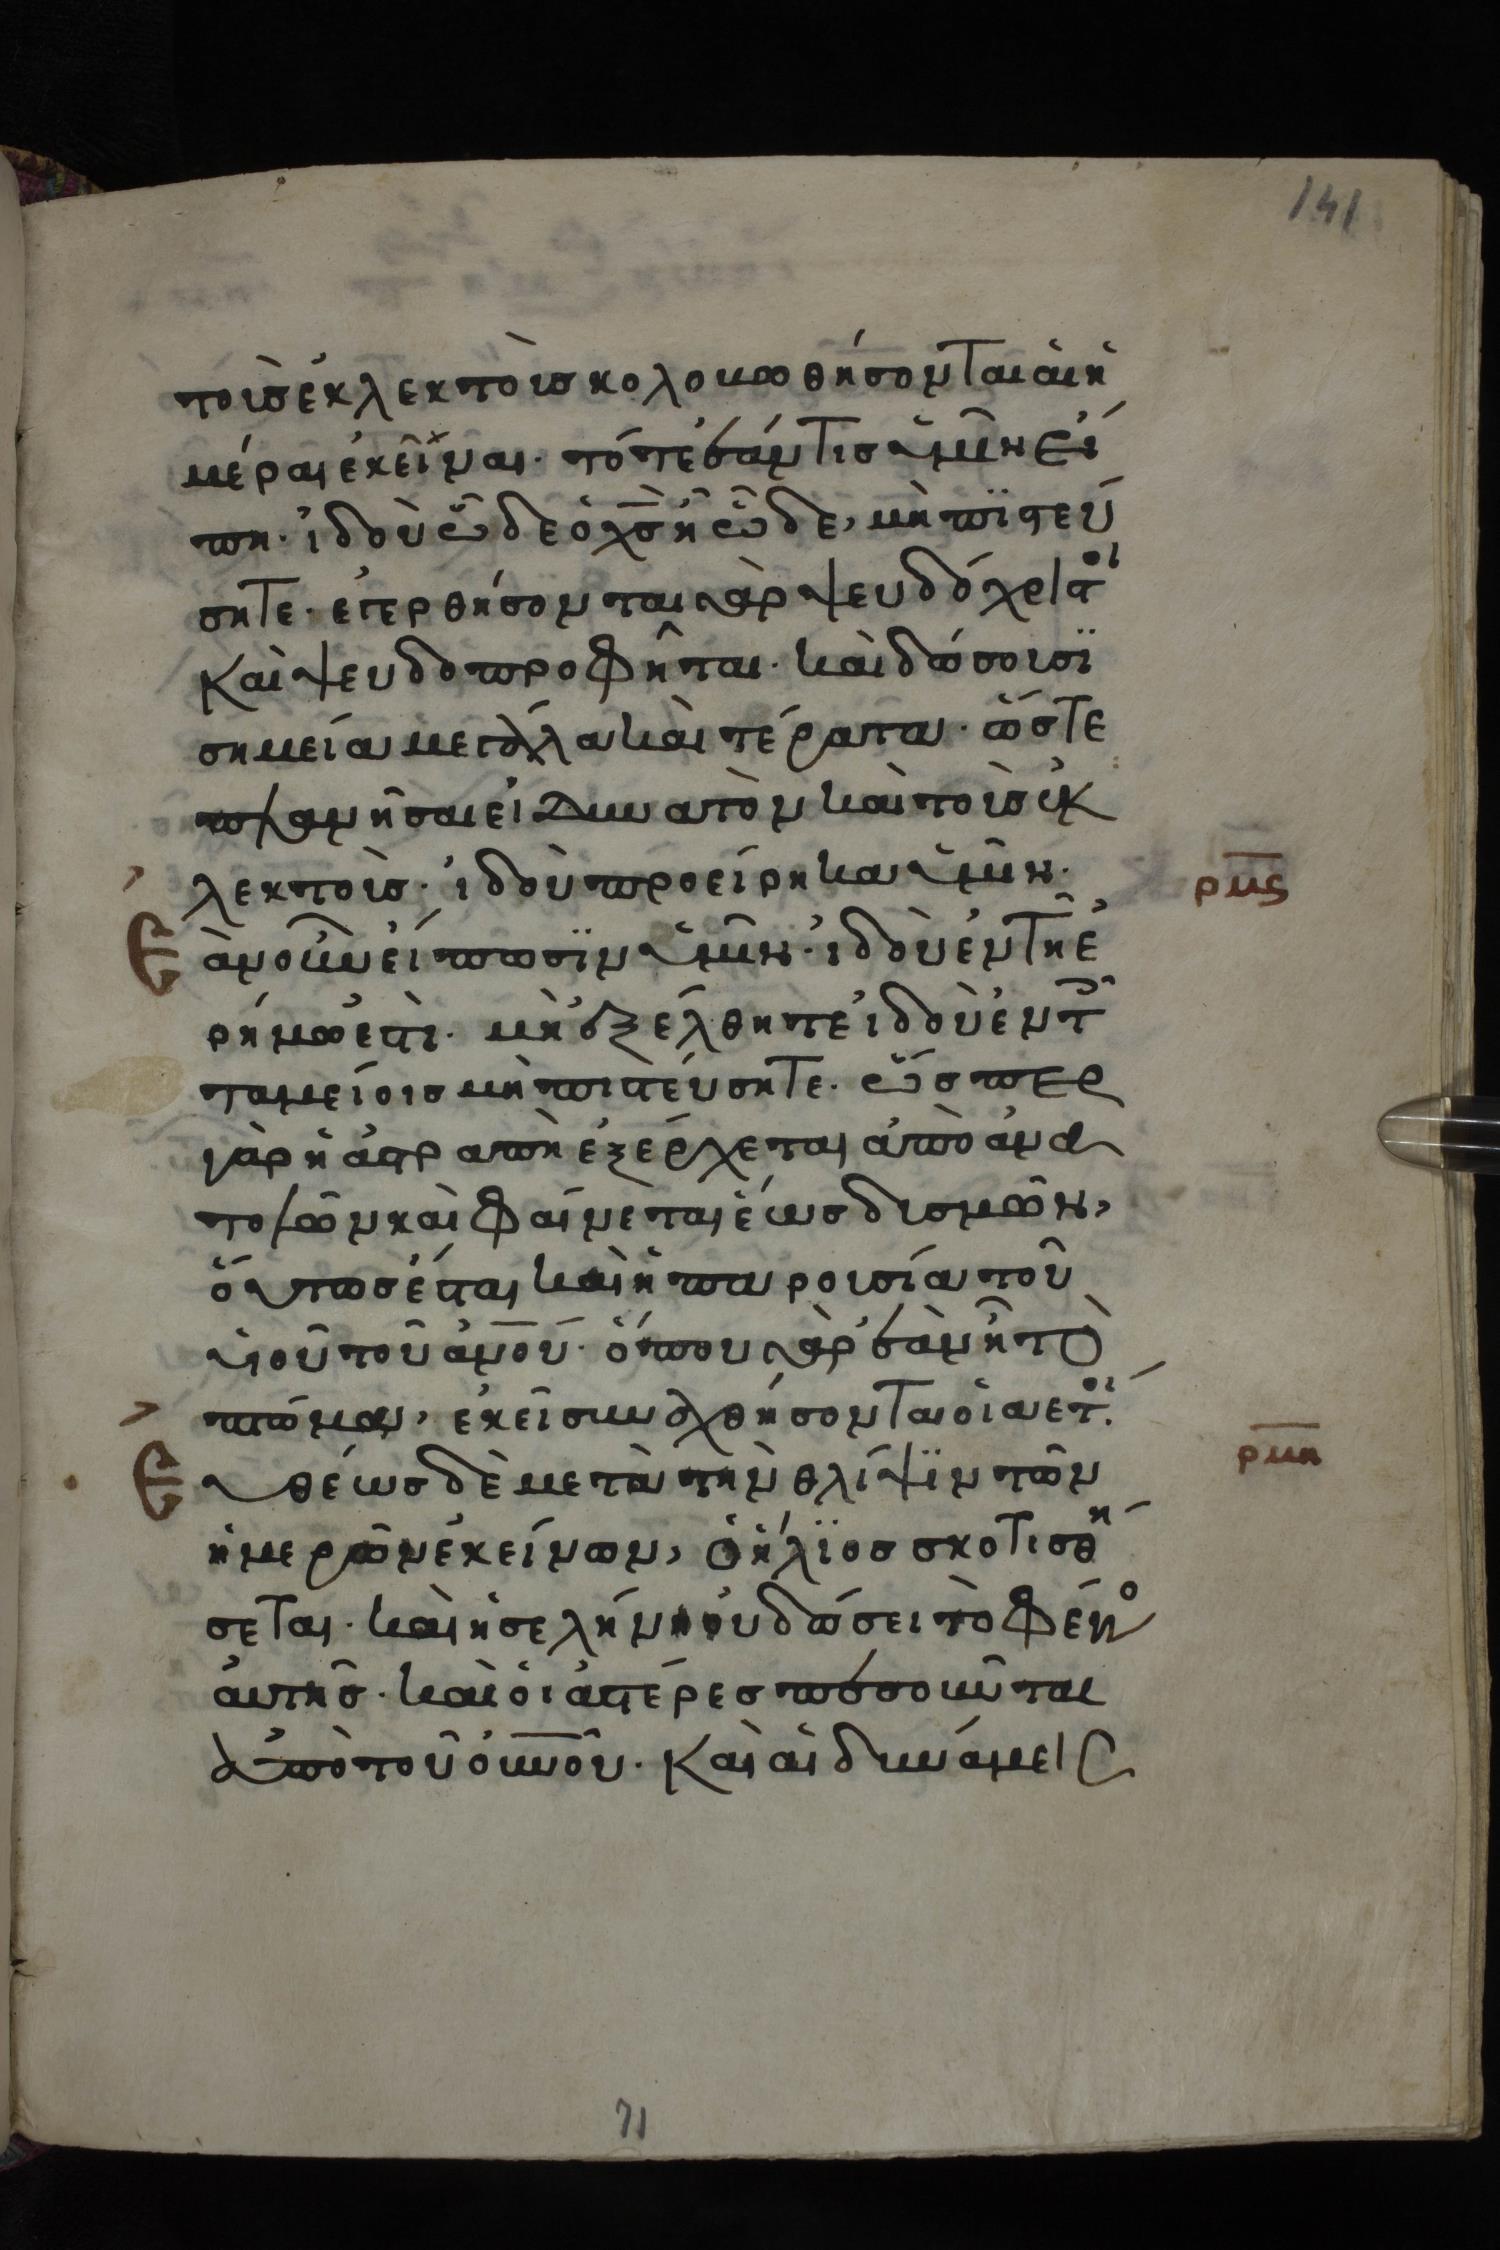 141
τοὺσ ἐκλεκτοὺσ κολοκωθήσονται αἱ ἡ
μέραι ἐκεῖναι· τότε ἐάν τισ ὑμῖν εἴ
πη· ἰδοὺ ὧδε ὁ χσ ἢ ὧδε, μὴ πϊστεύ
σητε· ἐγερθήσονται γὰρ ψευδόχριστοι
καὶ ψευδοπροφῆται· καὶ δώσουσϊ
σημεία μεγάλα καὶ τέρατα· ὥστε
πλανῆσαι εἰ δυνατὸν καὶ τοὺσ ἐκ
λεκτούσ· ἰδοὺ προείρηκα ὑμῖν·
ρμς
Ἐὰν οὖν εἴπωσϊν ὑμῖν· ἰδοὺ ἐν τῆ ἐ
ρήμω ἐστι· μὴ ἐξέλθητε ἰδοὺ ἐν τοῖσ
ταμείοισ μὴ πιστεύσητε· ὥσπερ
γὰρ ἡ ἀστραπὴ ἐξέρχεται ἀπὸ ἀνα
τολῶν καὶ φαίνεται ἕωσ δισμῶν,
ὅυτωσ ἔσται καὶ ἡ παρουσία τοῦ
ὑιοῦ τοῦ ἀνου· ὅπου γὰρ ἐὰν ἦ τὸ
πτῶμα, ἐκεῖ συναχθήσονται οἱ αετοί·
ρμη
Ἐυθέωσ δὲ μετὰ τὴν θλίψϊν τῶν
ἡμερῶν ἐκείνων, ὁ ἥλϊοσ σκοτισθή
σεται· καὶ ἡ σελήνη ὀυ δώσει τὸ φέγγοσ
ἀυτῆσ· καὶ οἱ ἀστέρεσ πεσοῦνται
ἀπὸ τοῦ ὀυνοῦ· καὶ αἱ δυνάμεισ
71